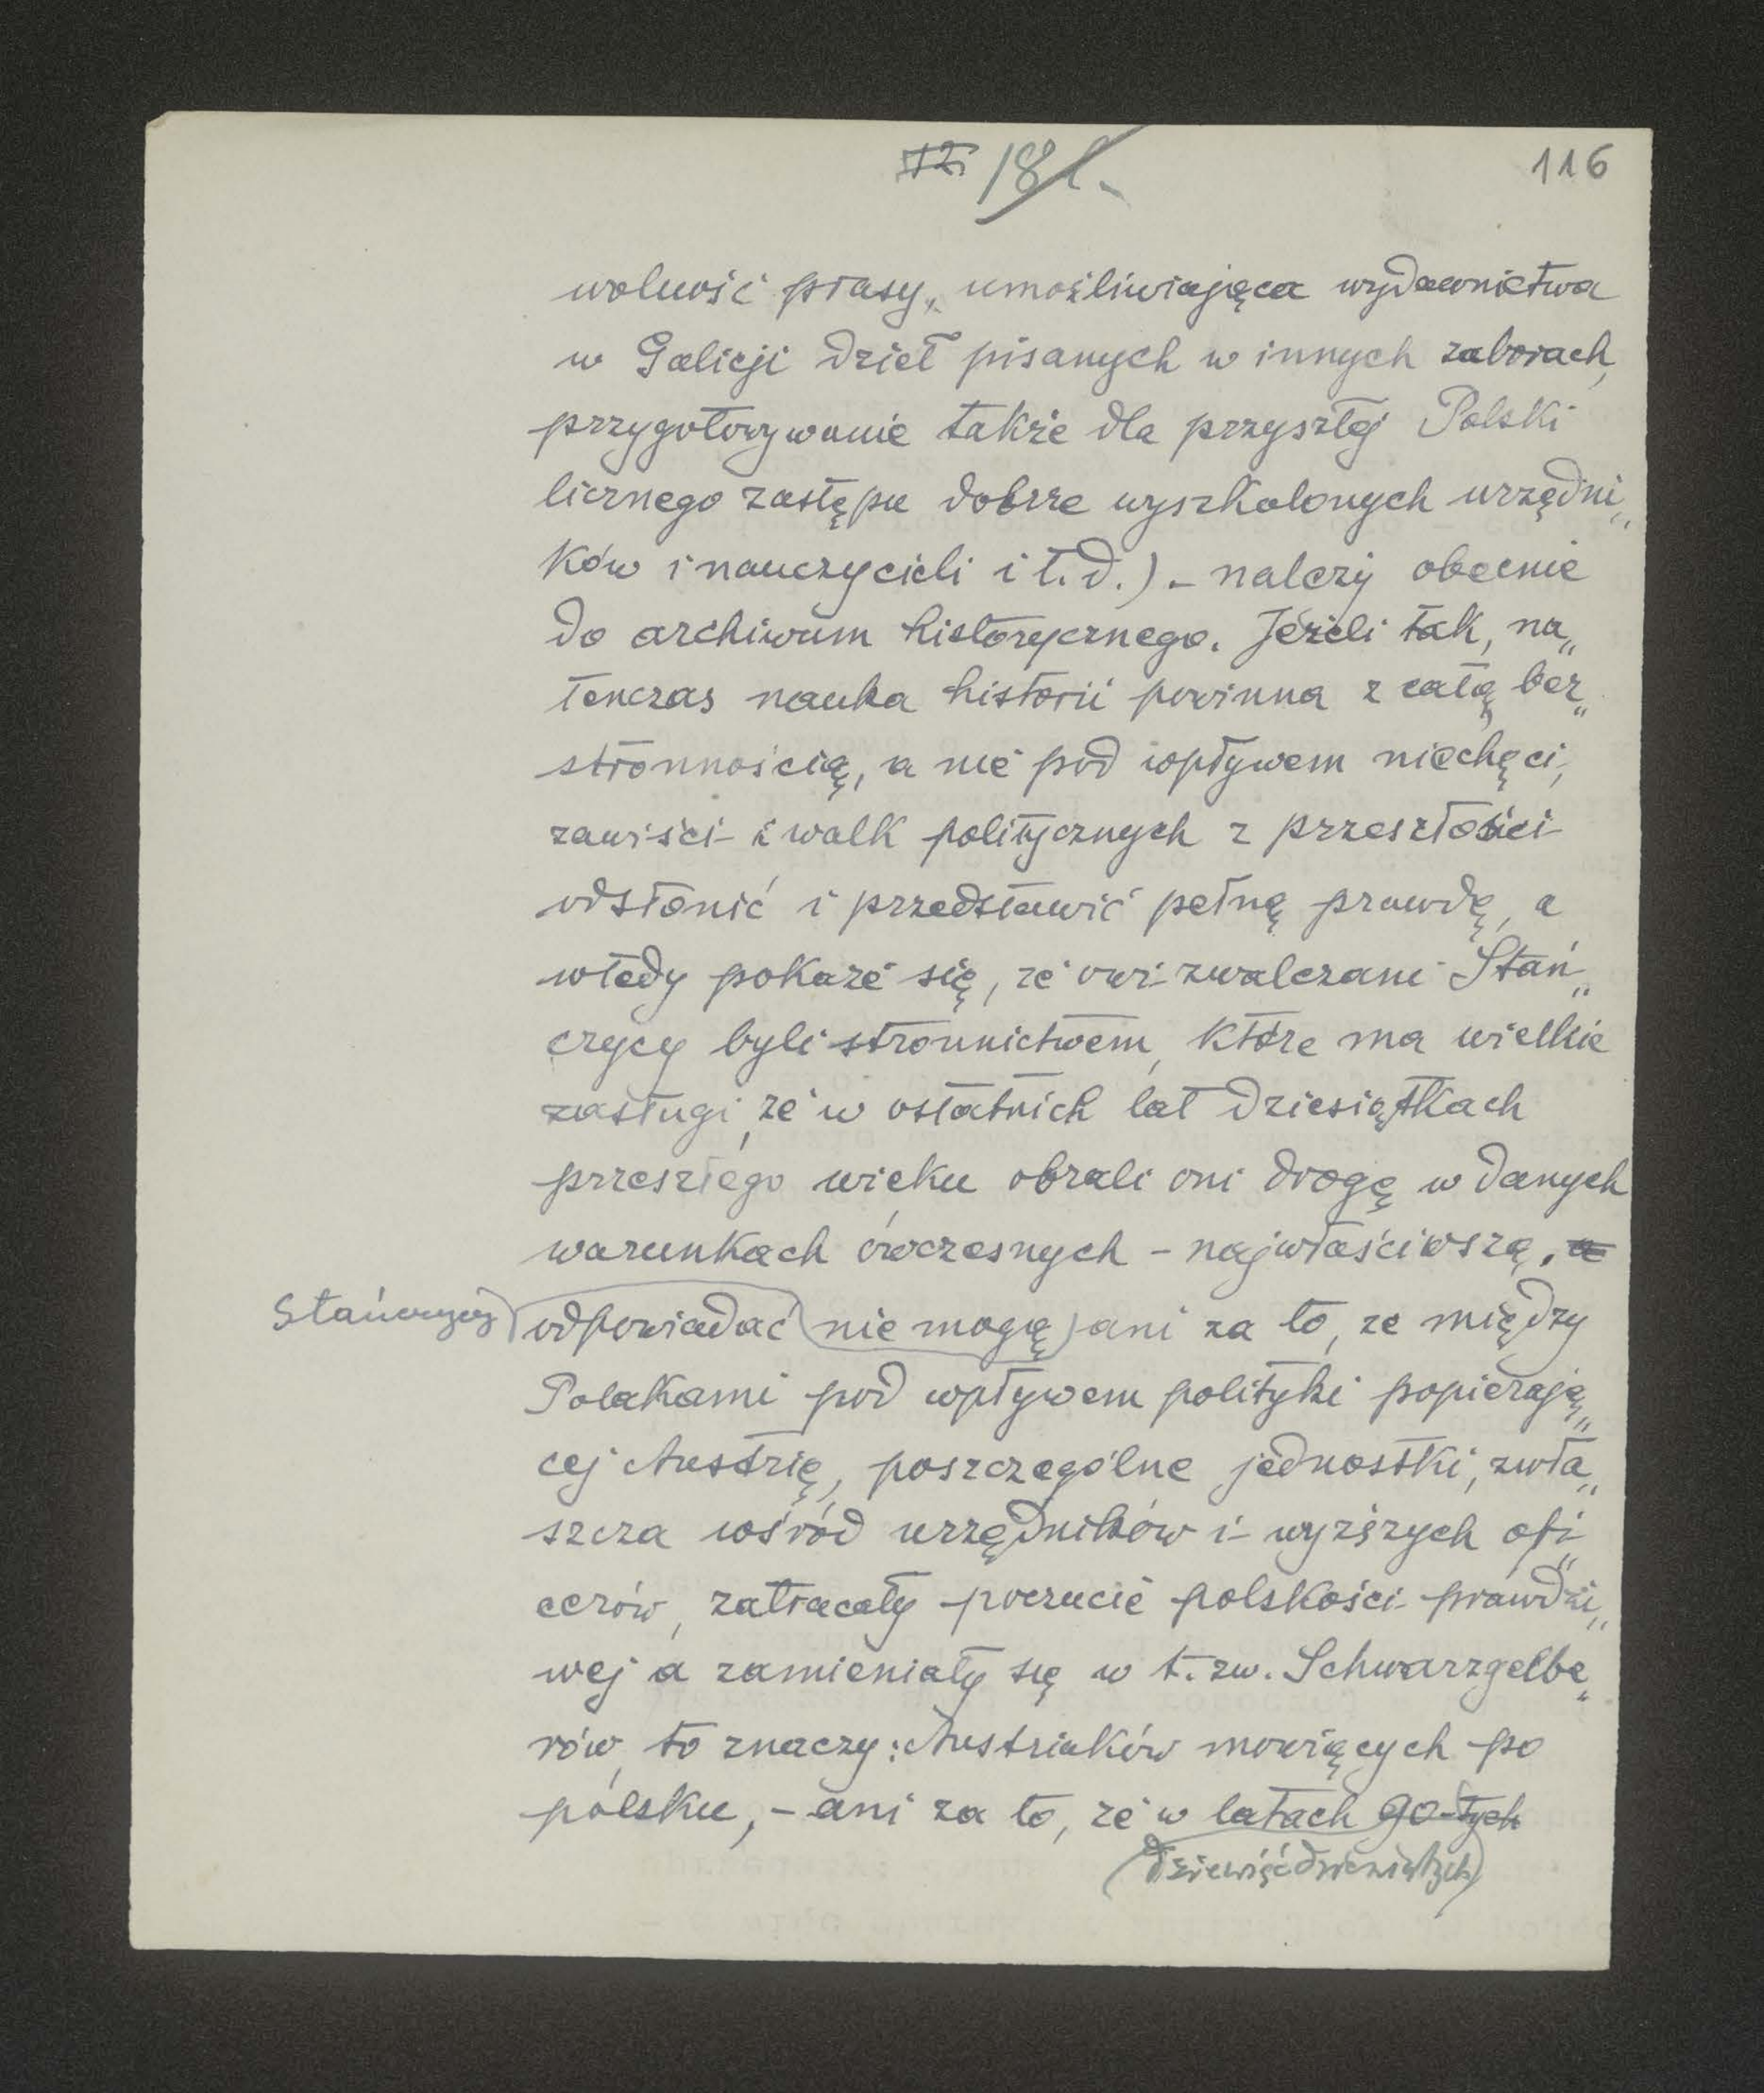 12. 181.
116
wolność prasy, umożliwiająca wydawnictwa
w Galicji dzieł pisanych w innych zaborach,
przygotowywanie także dla przyszłej Polski
licznego zastępu dobrze wyszkolonych urzędni„
ków i nauczycieli i t.d.) - należy obecnie
do archiwum historycznego. Jeżeli tak, na„
tenczas nauka historii powinna z całą bez„
stronnością, a nie pod wpływem niechęci,
zawiści i walk politycznych z przeszłości
odsłonić i przedstawić pełną prawdę, a
wtedy pokaże się, że owi zwalczani Stań„
czycy byli stronnictwem, które ma wielkie
zasługi, że w ostatnich lat dziesiątkach
przeszłego wieku obrali oni drogę w danych
warunkach ówczesnych - najwłaściwszą. a
Stańczycy odpowiadać nie mogą ani za to, że między
Polakami pod wpływem polityki popierają„
cej Austrię, poszczególne jednostki, zwła„
szcza wśród urzędników i wyższych ofi„
cerów, zatracały poczucie polskości prawdzi„
wej a zamieniały się w t. zw. Schwarzgelbe„
rów, to znaczy: Austriaków mówiących po
polsku, - ani za to, że w latach 90-tych
(dziewięćdziesiątych)